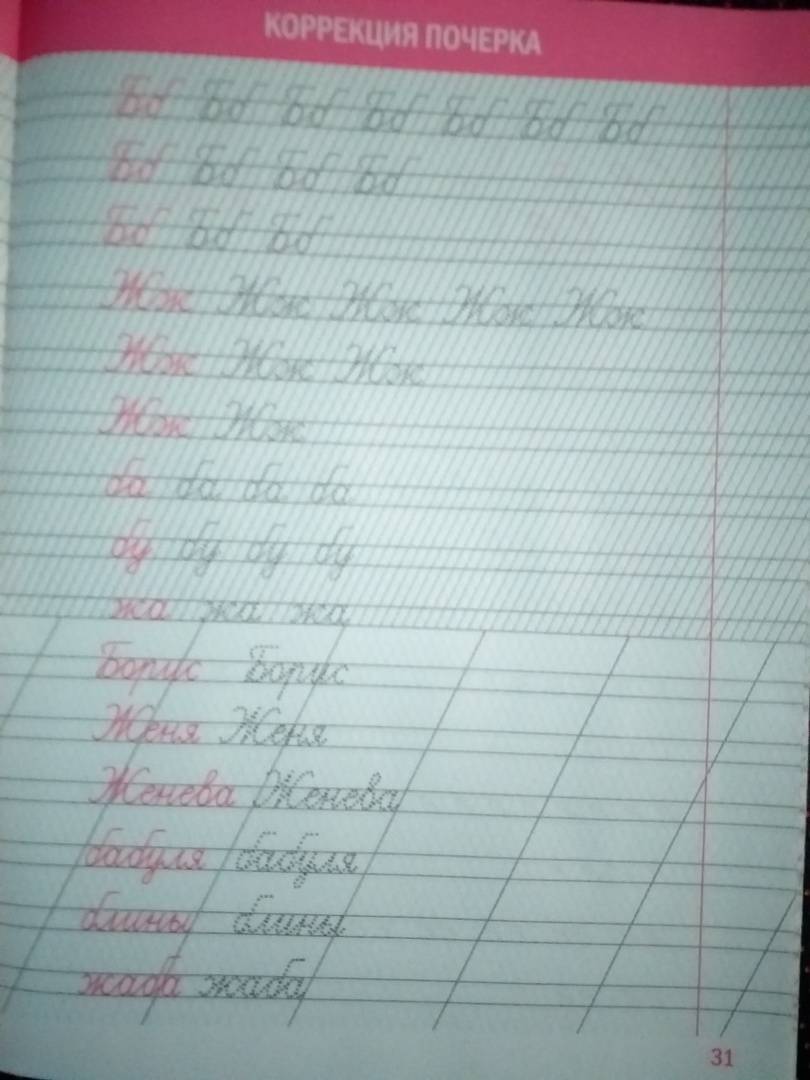 КОРРЕКЦИЯ ПОЧЕРКА
Бб Бб Бб Бб Бб Бб Бб
Бб Бб Бб Бб
Бб Бб Бб
Жж Жж Жж Жж Жж
Жж Жж Жж
Жж Жж
ба ба ба ба
бу бу бу бу
жа жа жа
Борис Борис
Женя Женя
Женева Женева
бабуля бабуля
блины блины
жаба жаба
31